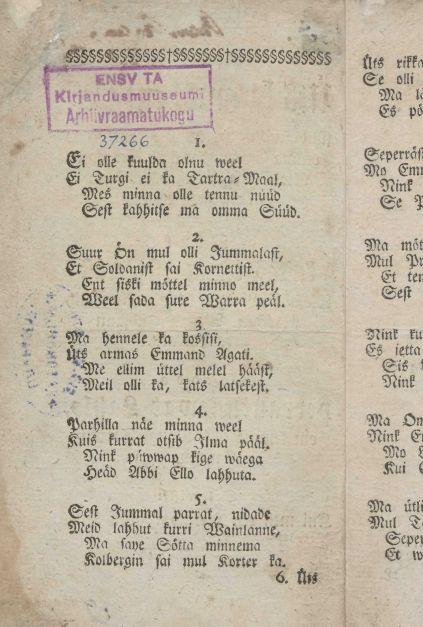 §§§§§§§§§§§§§†§§§§§§§†§§§§§§§§§§§§§
ENSV TA
Kirjandusmuuseumi
Arhiivraamatukogu
37266
1.
Ei olle kuulda olnu weel
Ei Turgi ei ka Tartra-Maal,
Mes minna olle tennu nüüd
Sest kahhitse ma omma Süüd.
2.
Suur Ön mul olli Jummalast,
Et Soldanist sai Kornettist.
Ent siski mõttel minno meel,
Weel sada sure Warra peäl.
3.
Ma hennele ka kossisi,
Üts armas Emmand Agati.
Me eilim üttel melel hääst,
Meil olli ka, kats latsekest.
4.
Parhilla näe minna weel
Kuis kurrat otsib Ilma pääl.
Nink püwwap kige wäega
Heäd Abbi Ello lahhuta.
5.
Sest Jummal parrat, nidade
Meid lahhut kurri Wainlanne,
Ma saye Sötta minnema
Kolbergin sai mul Korter ka.
6. Üts
Üts rikka
Se olli
Ma
Es
Seperräst
Mo Emm
Nink
Se
Ma
Mul
Et
Sest
Nink
Es jetta
Sis
Nink
Ma
Nink
Mo
Kui
Ma ütli
Mul
Seper
Et